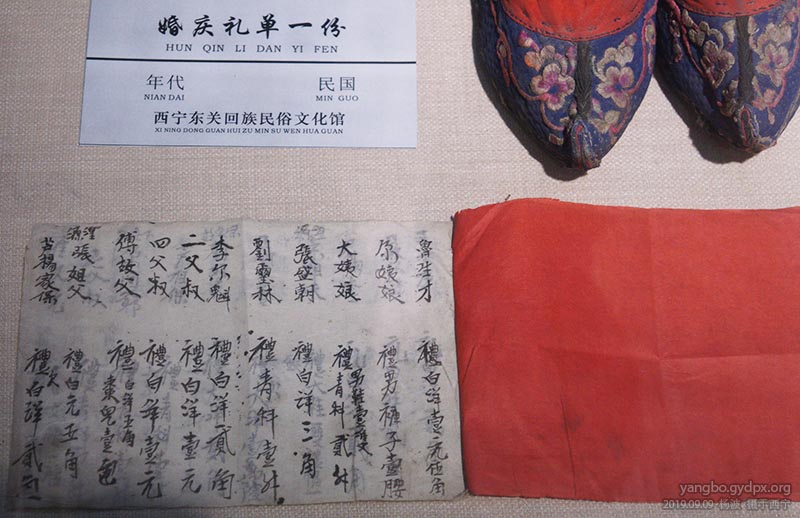 婚庆礼单一份
HUN QIN LI DAN YI FEN
年代 民国
NIAN DAI MIN GUO
西宁东关回族民俗文化馆
XI NING DONG GUAN HUI ZU MIN SU WEN HUA GUAN
魯生才 禮白洋壹元伍角
原姨娘 禮男褲子壹腰
大姨娘 禮青科貳升 男鞋壹雙
張盛朝 禮白洋三角
劉璽林 禮青科壹升
李尔魁 禮白洋貳角
二父叔 禮白洋壹元
四父叔 禮白洋壹元
傅故父 禮白洋五角 棗兒壹包
張姐父 禮白元五角
楊家保 禮白洋貳
yangbo.gydpx.org
2019.09.09 杨波 摄于西宁